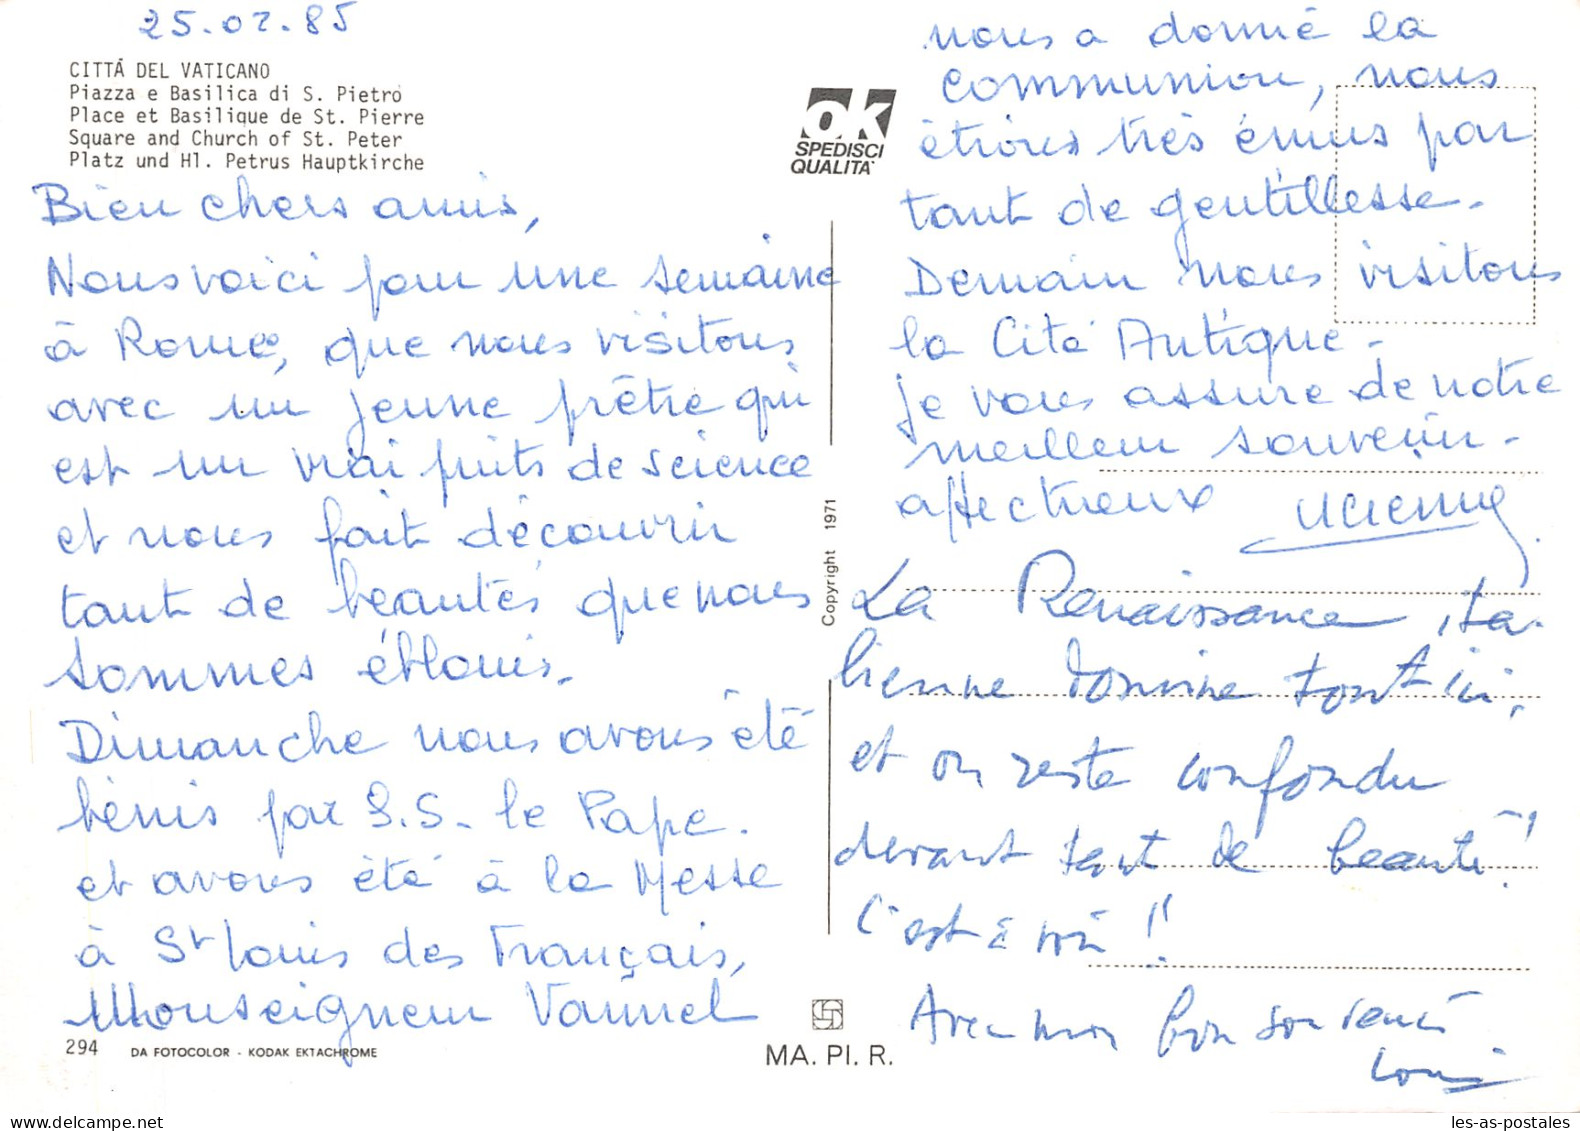 25.02.85
CITTÁ DEL VATICANO
Piazza e Basilica di S. Pietro
Place et Basilique de St. Pierre
Square and Church of St. Peter
Platz und Hl. Petrus Hauptkirche
Bien chers amis,
Nous voici pour une semaine
à Rome, que nous visitons
avec un jeune prêtre qui
est un vrai puits de science
et nous fait découvrir
tant de beautés que nous
sommes éblouis.
Dimanche nous avons été
bénis par S.S. le Pape.
et avons été à la Messe
à St Louis des Français,
Monseigneur Vannel
294 DA FOTOCOLOR - KODAK EKTACHROME
OK
SPEDISCI
QUALITA'
Copyright 1971
MA. PI. R.
nous a donné la
communion, nous
étions très émus par
tant de gentillesse.
Demain nous visitons
la Cité Antique.
je vous assure de notre
meilleur souvenir
affectueux
La Renaissance ita-
lienne domine tout ici,
et on reste confondu
devant tant de beauté!
C'est à voir !!
Avec mon bon souvenir
Louis
les-as-postales